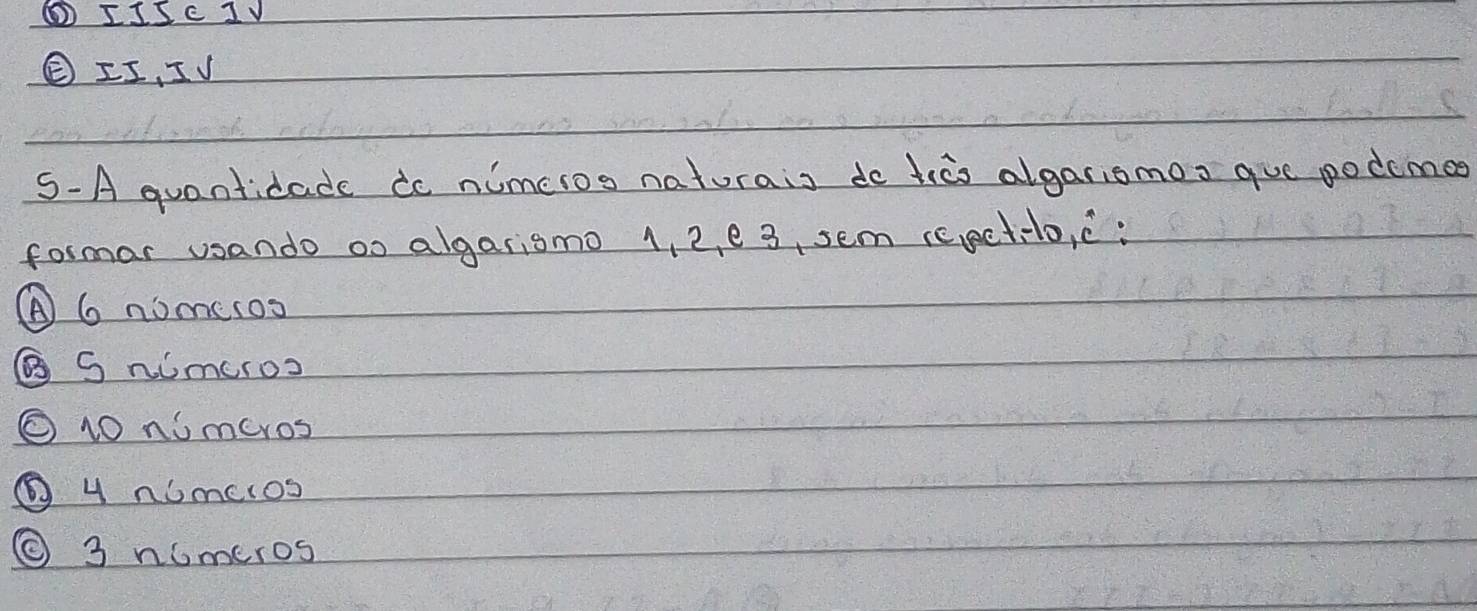 D III e IV
E II, IV
5-A quantidade de números naturais de três algarismos que podemos
formar usando os algarismo 1, 2, e 3, sem repeti-lo, é:
A 6 números
B 5 números
C 10 números
D 4 números
e 3 números